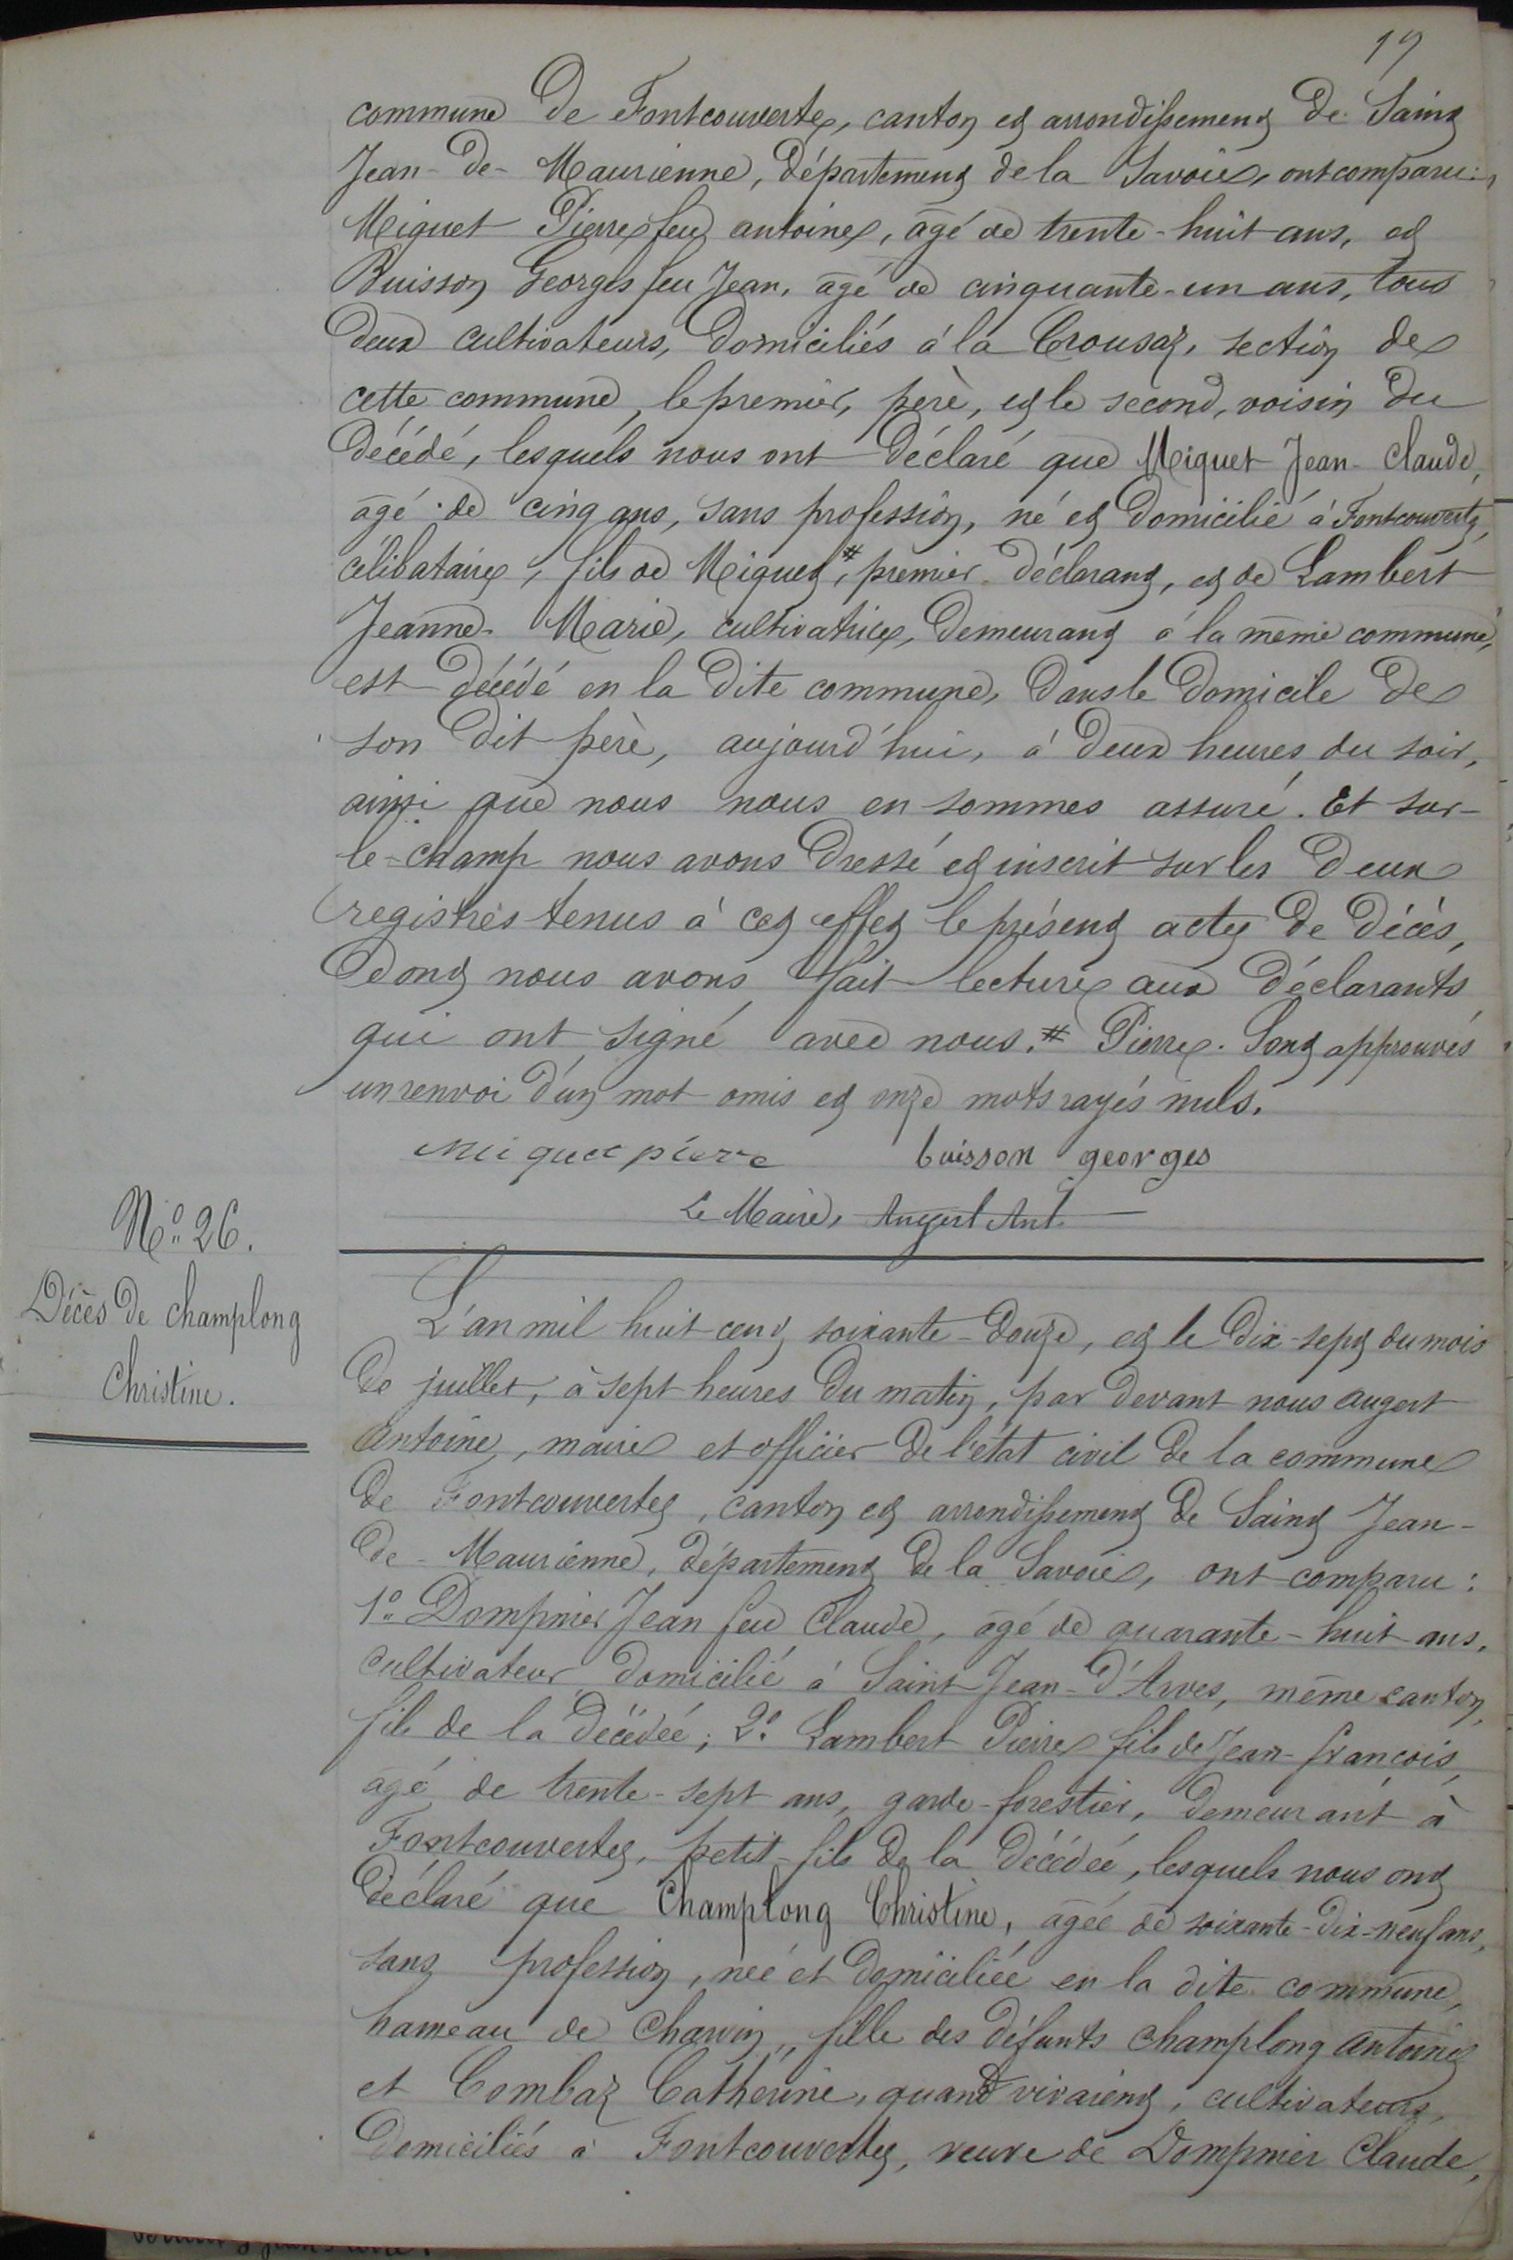 19
commune de Fontcouverte, canton et arrondissement de Saint
Jean-de-Maurienne, département de la Savoie, ont comparu :
Miquet Pierre feu antoine, âgé de trente-huit ans, et
Buisson Georges feu Jean, âgé de cinquante-un ans, tous
deux cultivateurs, domiciliés à la Crousaz, section de
cette commune, le premier, père, et le second, voisin du
décédé, lesquels nous ont déclaré que Miquet Jean-Claude,
âgé de cinq ans, sans profession, né et domicilié à Fontcouverte,
célibataire, fils de Miquet #, premier déclarant, et de Lambert
Jeanne-Marie, cultivatrice, demeurant à la même commune,
est décédé en la dite commune, dans le domicile de
son dit père, aujourd'hui, à deux heures du soir,
ainsi que nous nous en sommes assuré. Et sur-
le-champ nous avons dressé et inscrit sur les deux
registres tenus à cet effet le présent acte de décès,
dont nous avons fait lecture aux déclarants
qui ont signé avec nous. # Pierre. Sont approuvés
un renvoi d'un mot omis et onze mots rayés nuls.
miquet pierre buisson georges
Le Maire, Augert Ant.
N.º 26.
Décès de champlong
Christine.
L'an mil huit cent soixante-douze, et le dix-sept du mois
de juillet, à sept heures du matin, par devant nous augert
antoine, maire et officier de l'état civil de la commune
de Fontcouverte, canton et arrondissement de Saint Jean-
de-Maurienne, département de la Savoie, ont comparu :
1º Dompnier Jean feu Claude, âgé de quarante-huit ans,
cultivateur domicilié à Saint Jean-d'Arves, même canton,
fils de la décédée ; 2º Lambert Pierre fils de Jean-francois,
âgé de trente-sept ans, garde-forestier, demeurant à
Fontcouverte, petit-fils de la décédée, lesquels nous ont
déclaré que Champlong Christine, âgée de soixante-dix-neuf ans,
sans profession, née et domiciliée en la dite commune,
hameau de Charvin, fille des défunts champlong antoine
et Combaz Catherine, quand vivaient, cultivateurs,
domiciliés à Fontcouverte, veuve de Dompnier Claude,